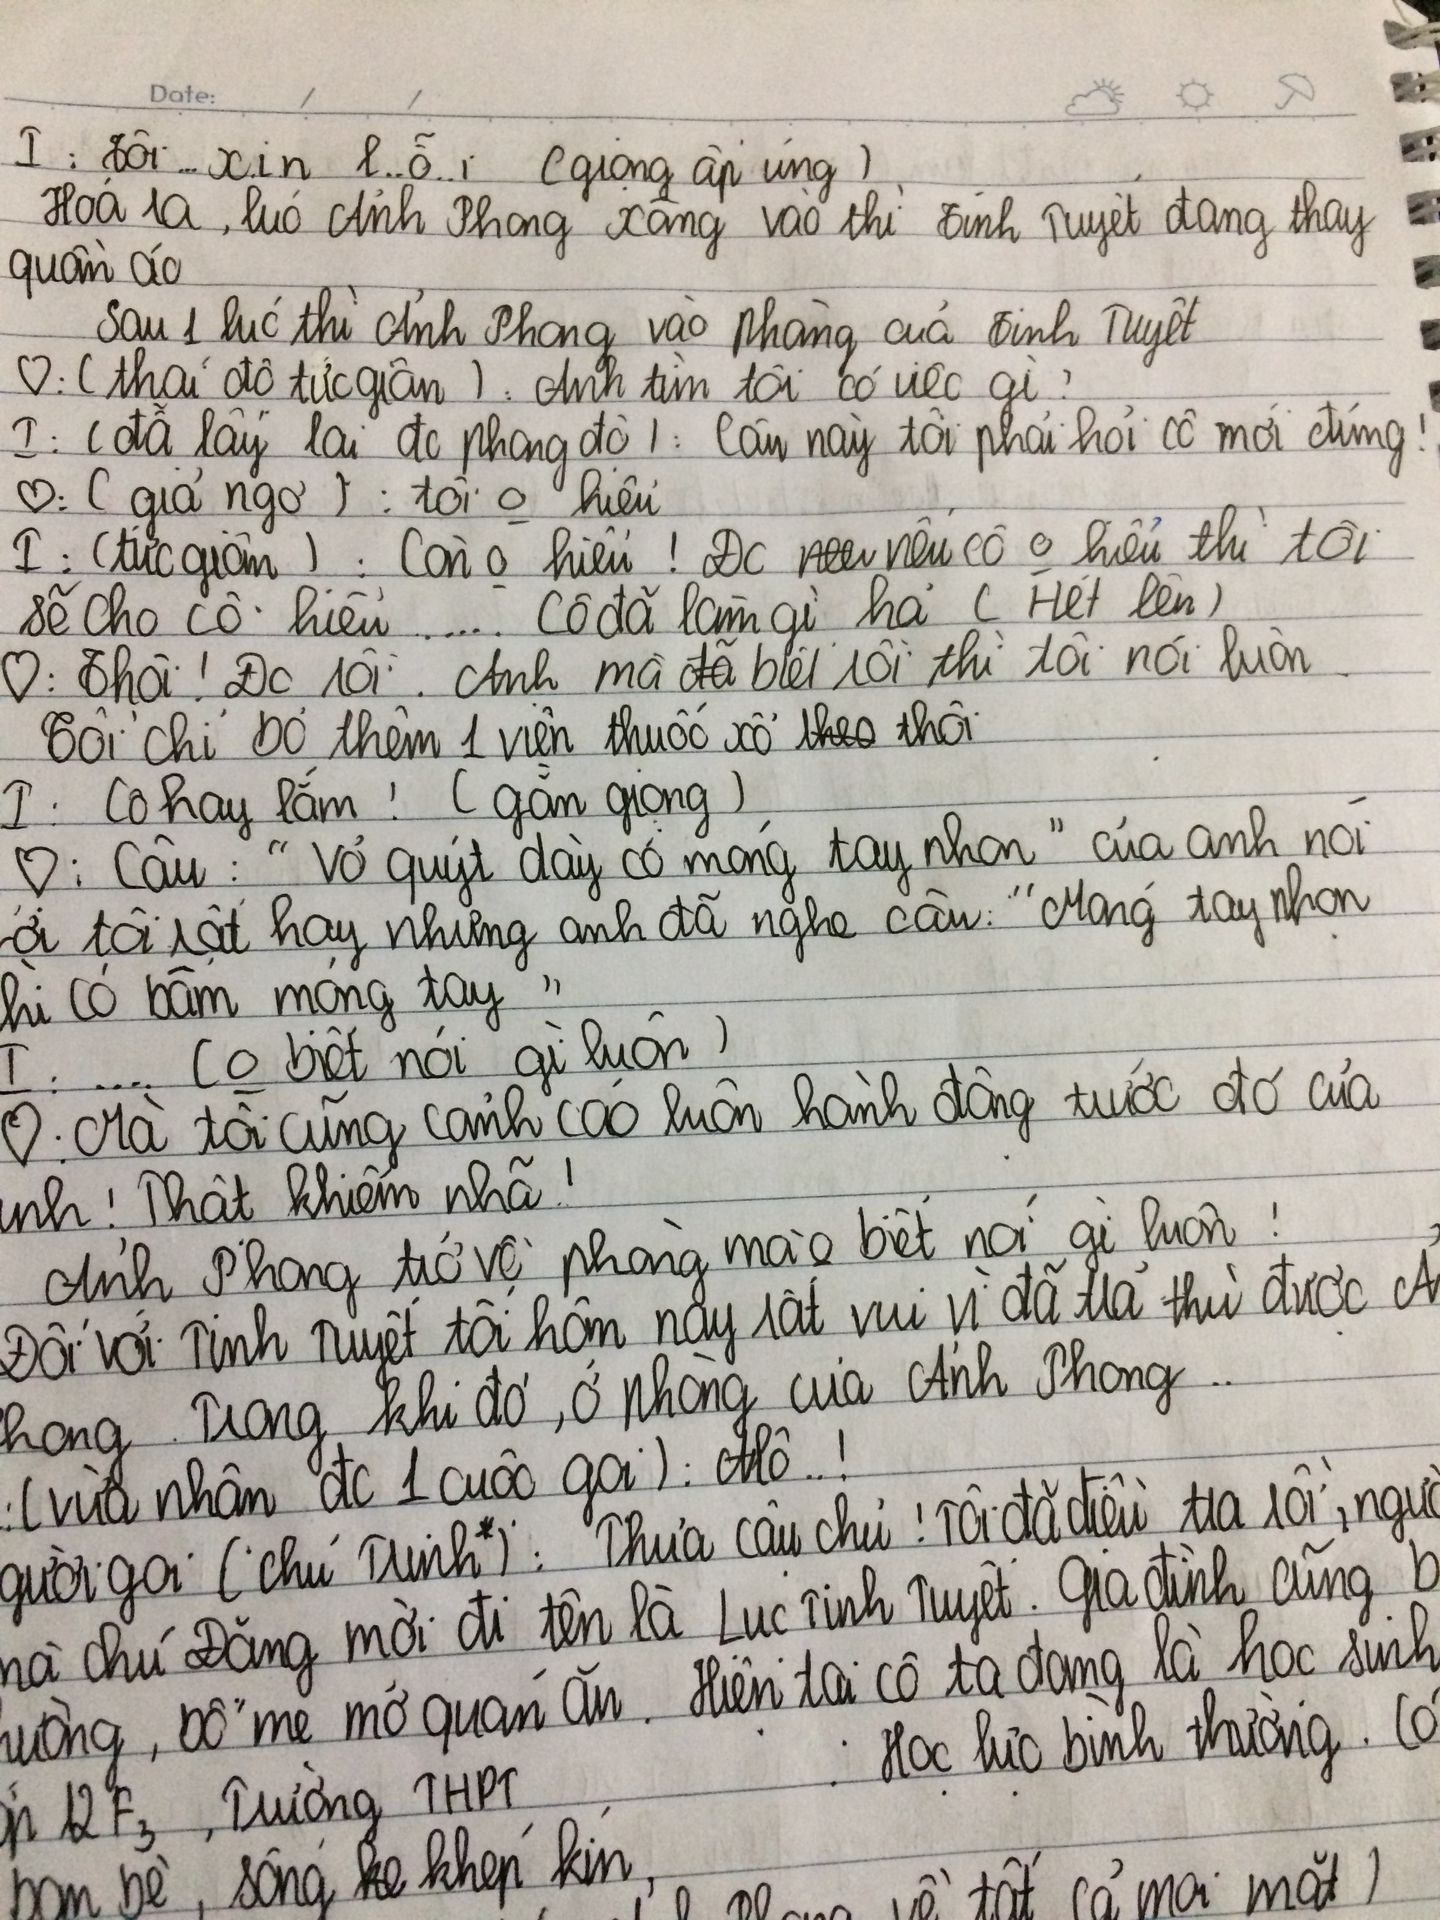 Date: / /
I : Tôi... xin l..ỗ..i (giọng ấp úng)
Hoá ra, lúc Ảnh Phong xông vào thì Tinh Tuyết đang thay
quần áo
Sau 1 lúc thì Ảnh Phong vào phòng của Tinh Tuyết
♡: (thái độ tức giận) : Anh tìm tôi có việc gì?
I : (đã lấy lại đc phong độ) : Câu này tôi phải hỏi cô mới đúng!
♡: (giả ngơ) : tôi o hiểu
I : (tức giận) : Còn o hiểu ! Đc nếu cô o hiểu thì tôi
sẽ cho cô hiểu ..... Cô đã làm gì hả (Hét lên)
♡: Thôi! Đc rồi. Anh mà đã biết rồi thì tôi nói luôn
Tôi chỉ bỏ thêm 1 viên thuốc xổ theo thôi
I : Cô hay lắm ! (gằn giọng)
♡: Câu : "Vỏ quýt dày có móng tay nhọn" của anh nói
ới tôi rất hay nhưng anh đã nghe câu: "Móng tay nhọn
hì có bấm móng tay"
I : .... (o biết nói gì luôn)
♡: Mà tôi cũng cảnh cáo luôn hành động trước đó của
anh! Thật khiếm nhã!
Ảnh Phong trở về phòng mà o biết nói gì luôn !
Đối với Tinh Tuyết tối hôm nay rất vui vì đã trả thù được Ả
hong. Trong khi đó, ở phòng của Ảnh Phong..
:(vừa nhận đc 1 cuộc gọi) : Alô..!
gười gọi (chú Trinh*) : Thưa cậu chủ! Tôi đã điều tra rồi, ngườ
mà chú Đăng mời đi tên là Lục Tinh Tuyết. Gia đình cũng b
hường, bố mẹ mở quán ăn. Hiện tại cô ta đang là học sinh
ớp 12F3, Trường THPT : Học lực bình thường. Có
bạn bè, sống ke khép kín.
Phong về tất cả mọi mặt)